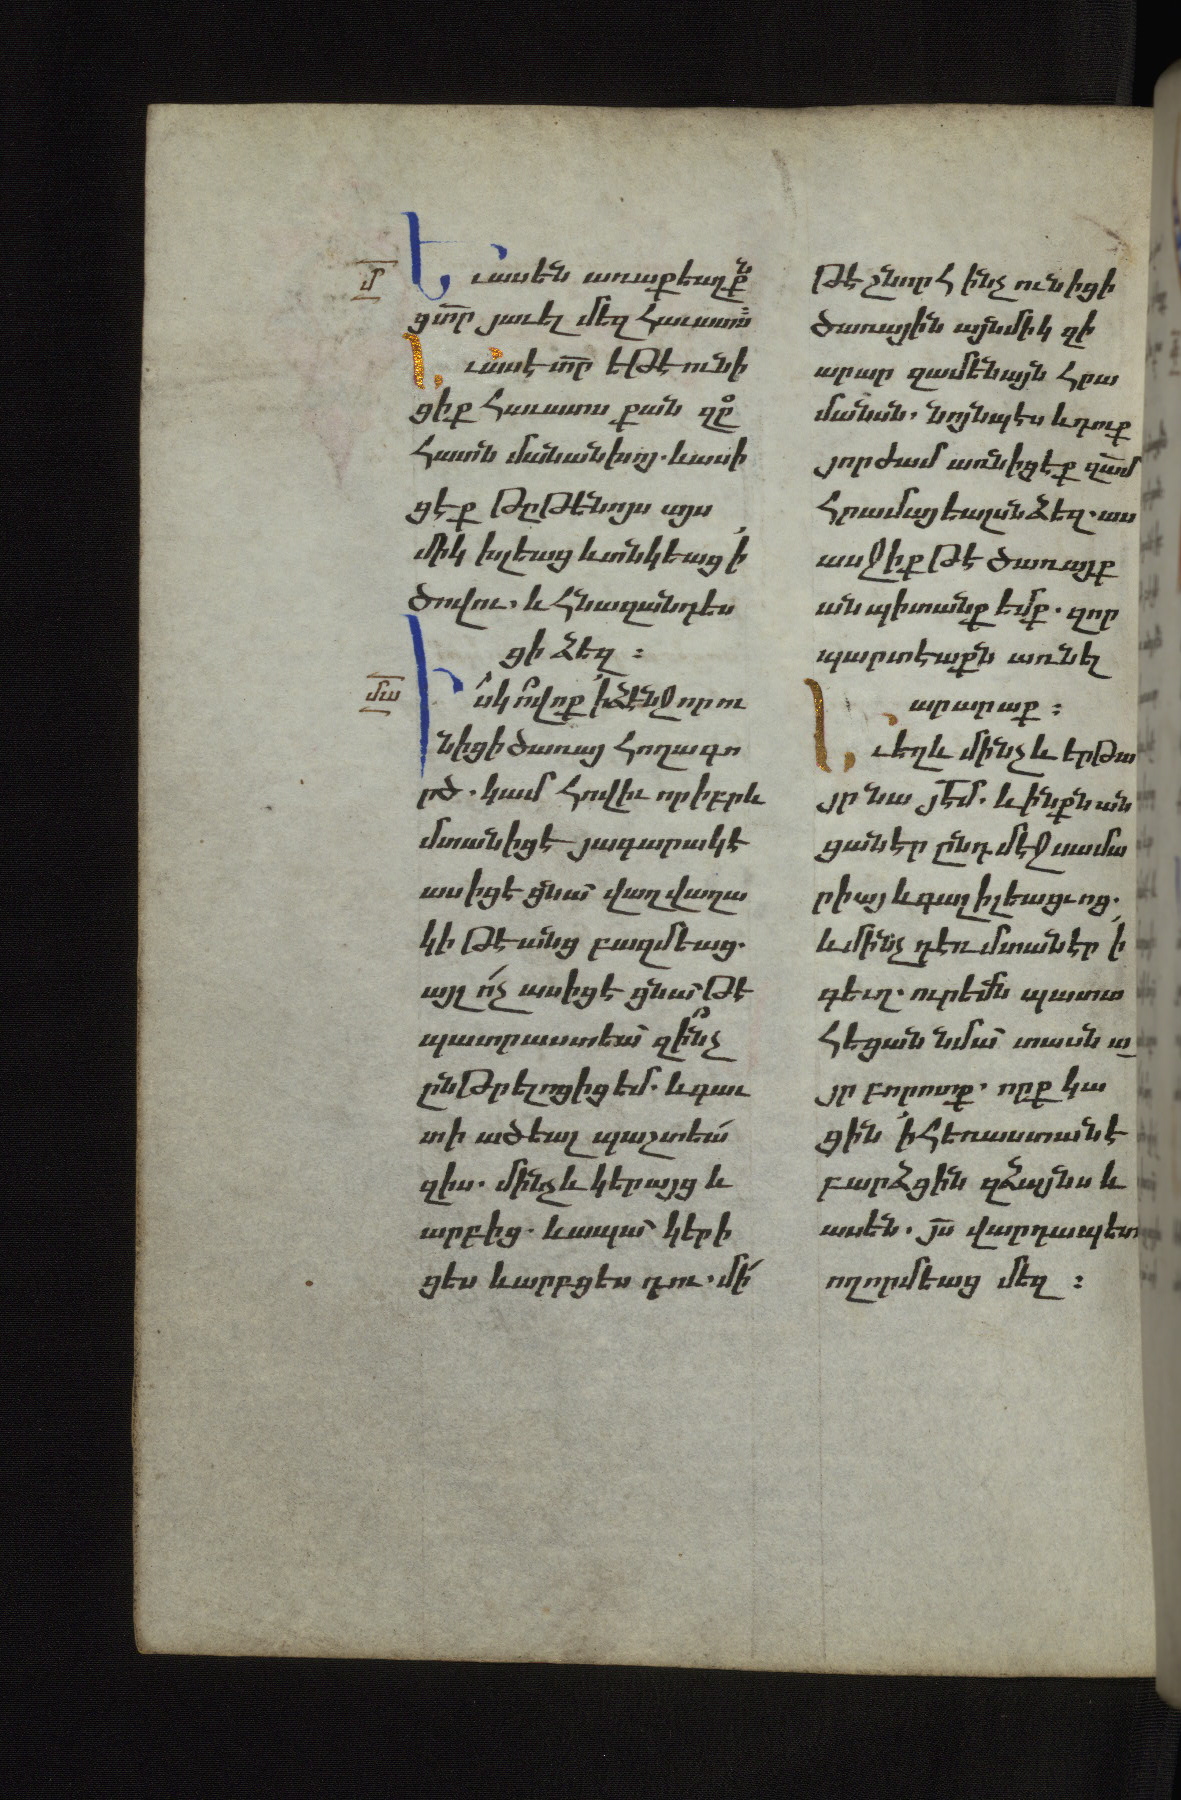 խ
Եւ ասեն առաքեալքն
ցտ̅ր յաւել մեզ հաւատս։
Եւ ասէ տ̅ր եթէ ունի
ցիք հաւատս քան զը
հատն մանանխոյ. և ասի
ցէք թըթենոյս այս
միկ խլեաց և տնկեաց ի
ծովու. և հնազանդես
ցի ձեզ ։
Ի՞սկ ո՞վ ոք ի ձէնջ որ ու
նիցի ծառայ հողագո
րծ. կամ հովիւ որ իբրև
մտանիցէ յագարակէ
ասիցէ ցնա՝ վաղվաղա
կի թէ անց բազմեաց.
այլ ո՛չ ասիցէ ցնա՝ թէ
պատրաստեա՛ զի՞նչ
ընթրելոցիցեմ. և գաւ
տի ածեալ պաշտեա՛
զիս. մինչև կերայց և
արբից. և ապա՝ կերի
ցես և արբցես դու. մի՛
թէ շնորհ ինչ ունիցի
ծառային այնմիկ զի
արար զամենայն հրա
մանսն. նոյնպէս և դուք
յորժամ առնիցէք զա̅մ
հրամայեալսն ձեզ. աս
ասջիք թէ ծառայք
անպիտանք եմք. զոր
պարտէաքն առնել
արարաք ։
Եւ եղև մինչև երթա
յր նա յե̅մ. և ինքն ան
ցանէր ընդ մէջ սամա
րիայ և գալիլեացւոց.
և մինչ դեռ մտանէր ի
գեւղ. ուրեմն պատա
հեցան նմա՝ տասն ա
յր բորոտք. որք կա
ցին ի հեռաստանէ
բարձցին զձայնս և
ասեն. յս̅ վարդապետ
ողորմեաց մեզ ։